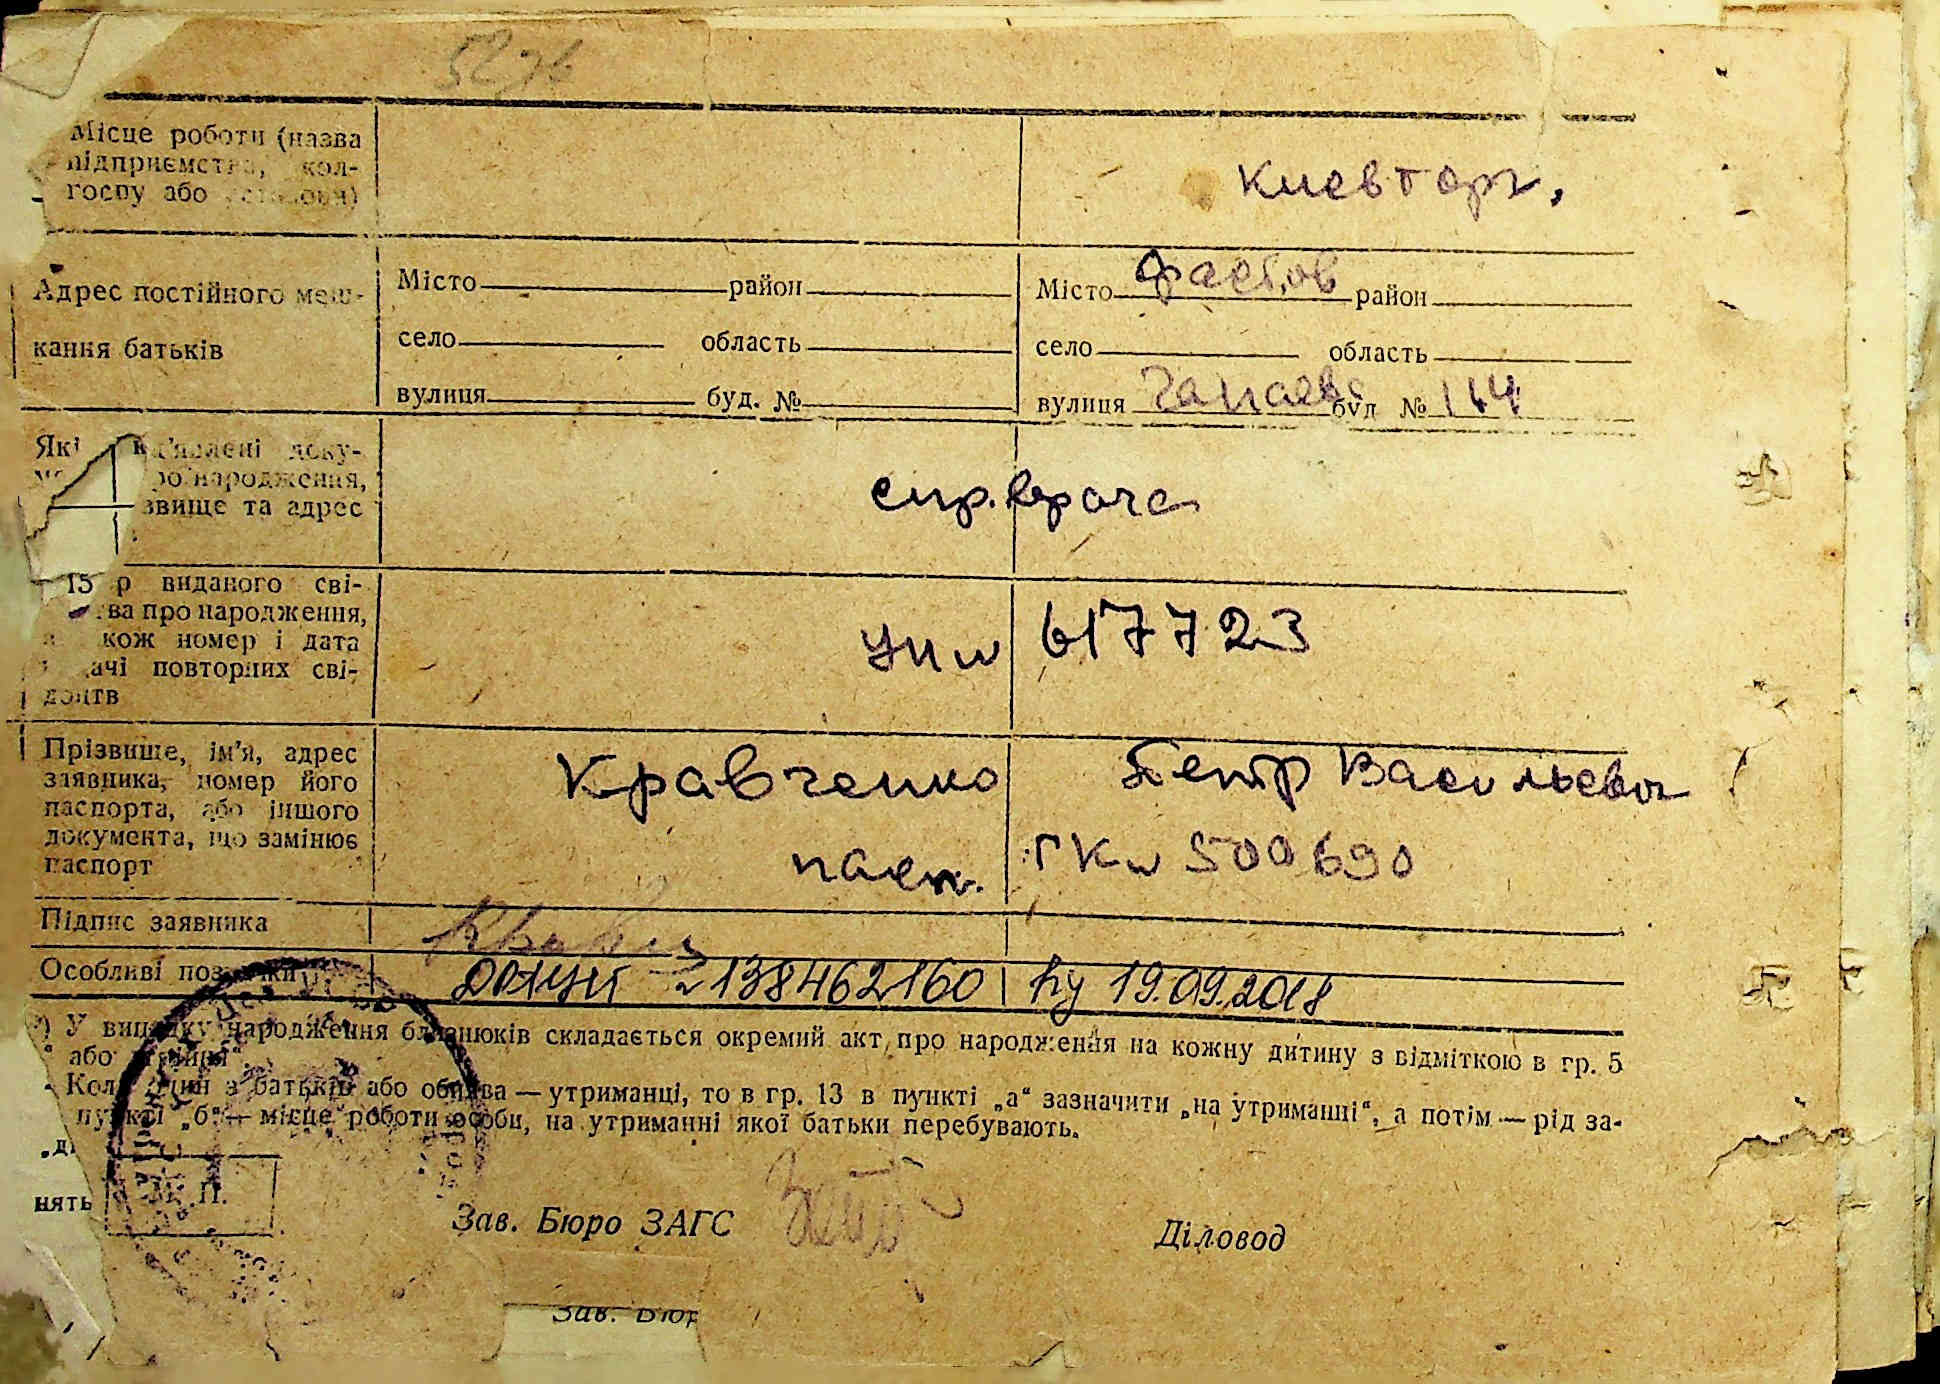 Місце роботи (назва
підприємства, кол-
госпу або установи)
Киевторг,
Адрес постійного меш-
кання батьків
Місто район
село область
вулиця буд. №
Місто Фастов район
село область
вулиця Чапаева буд № 144
Які
'явлені доку-
ро народження,
звище та адрес
спр. врача
15 р виданого сві-
ва про народження,
кож номер і дата
ачі повторних сві-
доцтв
617723
Прізвище, ім'я, адрес
заявника, номер його
паспорта, або іншого
документа, що замінює
паспорт
Кравченко Петр Васильевич
пасп. ГК№ 500690
Підпис заявника
Особливі позначки
138462160 19.09.2018
У випадку народження близнюків складається окремий акт про народження на кожну дитину з відміткою в гр. 5
або
Коли один з батьків або обидва — утриманці, то в гр. 13 в пункті „а“ зазначити „на утриманні“, а потім — рід за-
пункті „б“ — місце роботи особи, на утриманні якої батьки перебувають.
нять
М. П.
Зав. Бюро ЗАГС
Діловод
Зав. Бюр